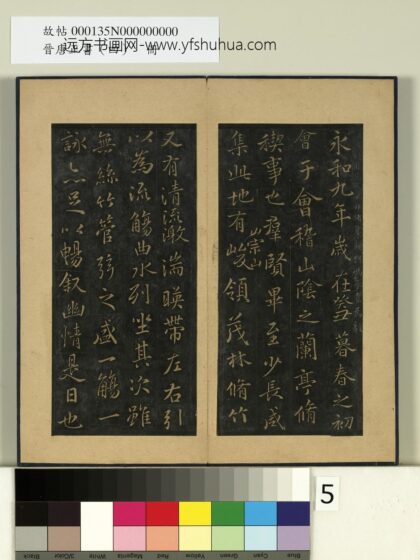 故帖 000135N000000000
远方书画网-www.yfshuhua.com
永和九年歲在癸丑暮春之初
會于會稽山陰之蘭亭脩
禊事也羣賢畢至少長咸
集此地有崇山峻領茂林脩竹
又有清流激湍暎帶左右引
以為流觴曲水列坐其次雖
無絲竹管弦之盛一觴一
詠亦足以暢叙幽情是日也
5
Black
3/Color
White
Magenta
Red
Yellow
Green
Cyan
Blue